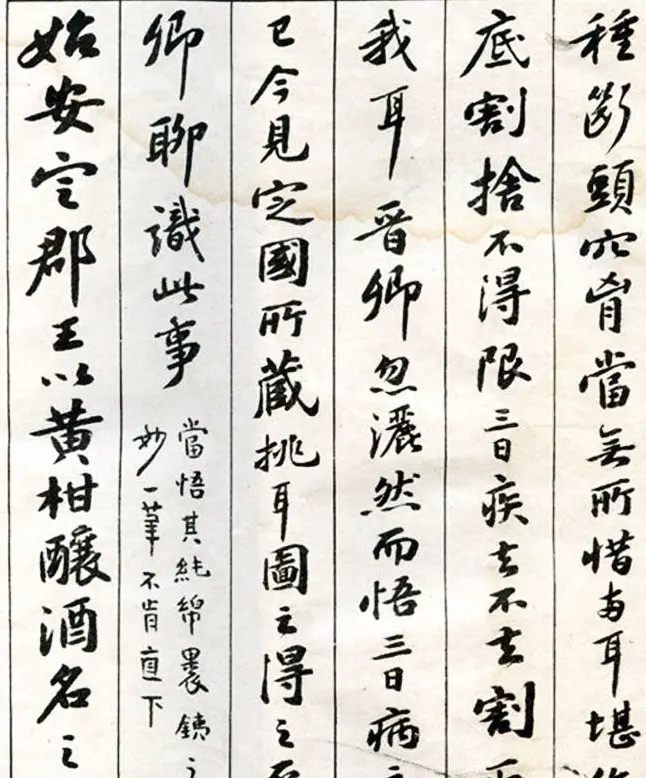 種斷頭穴胷當無所惜两耳堪
底割捨不得限三日疾去不去割
我耳晉卿忽灑然而悟三日病
已今見定國所藏挑耳圖云得之
卿聊識此事
當悟其純綿裹鐵
妙一筆不肯直下
始安定郡王以黄柑釀酒名之